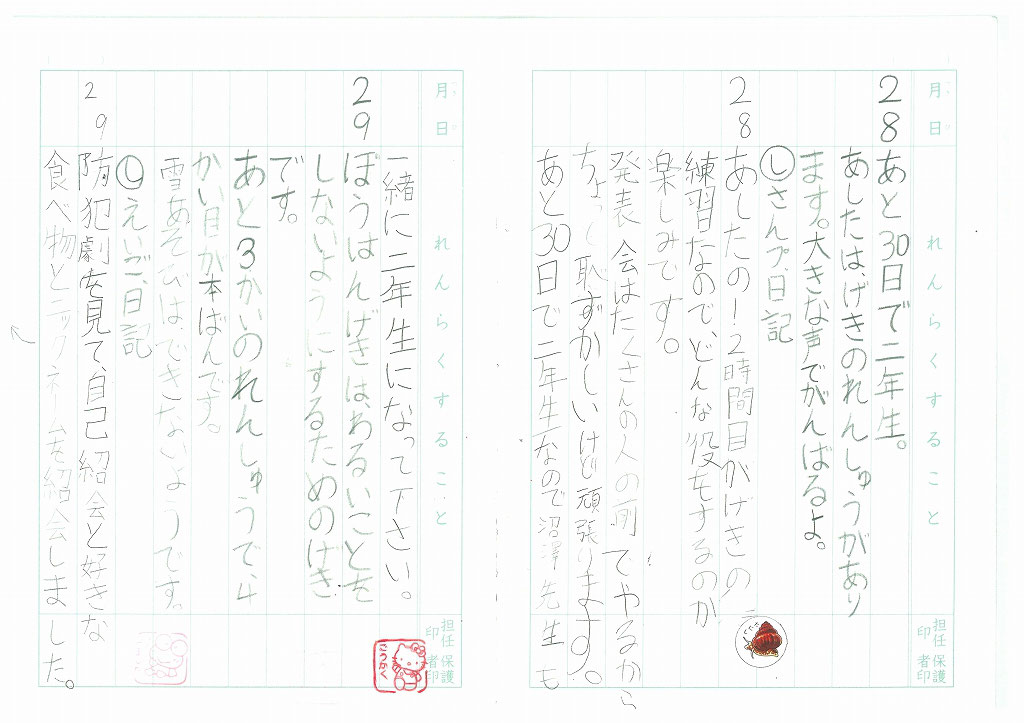 月 日
れんらくすること
担任印
保護者印
28 あと30日で二年生。
あしたは、げきのれんしゅうがあり
ます。大きな声でがんばるよ。
しさんプ、日記
28 あしたの！2時間目がげきの
練習なので、どんな役をするのか
楽しみです。
発表会はたくさんの人の前でやるから
ちょっと恥ずかしいけど頑張ります。
あと30日で二年生なので沼澤先生も
月 日
れんらくすること
担任印
保護者印
一緒に二年生になって下さい。
29 ぼうはんげきは、わるいことを
しないようにするためのげき
です。
あと3かいのれんしゅうで、4
かい目が本ばんです。
雪あそびは、できないようです。
しえいご、日記
29 防犯劇を見て、自己紹会と好きな
食べ物とニックネームを紹会しました。
ごうかく